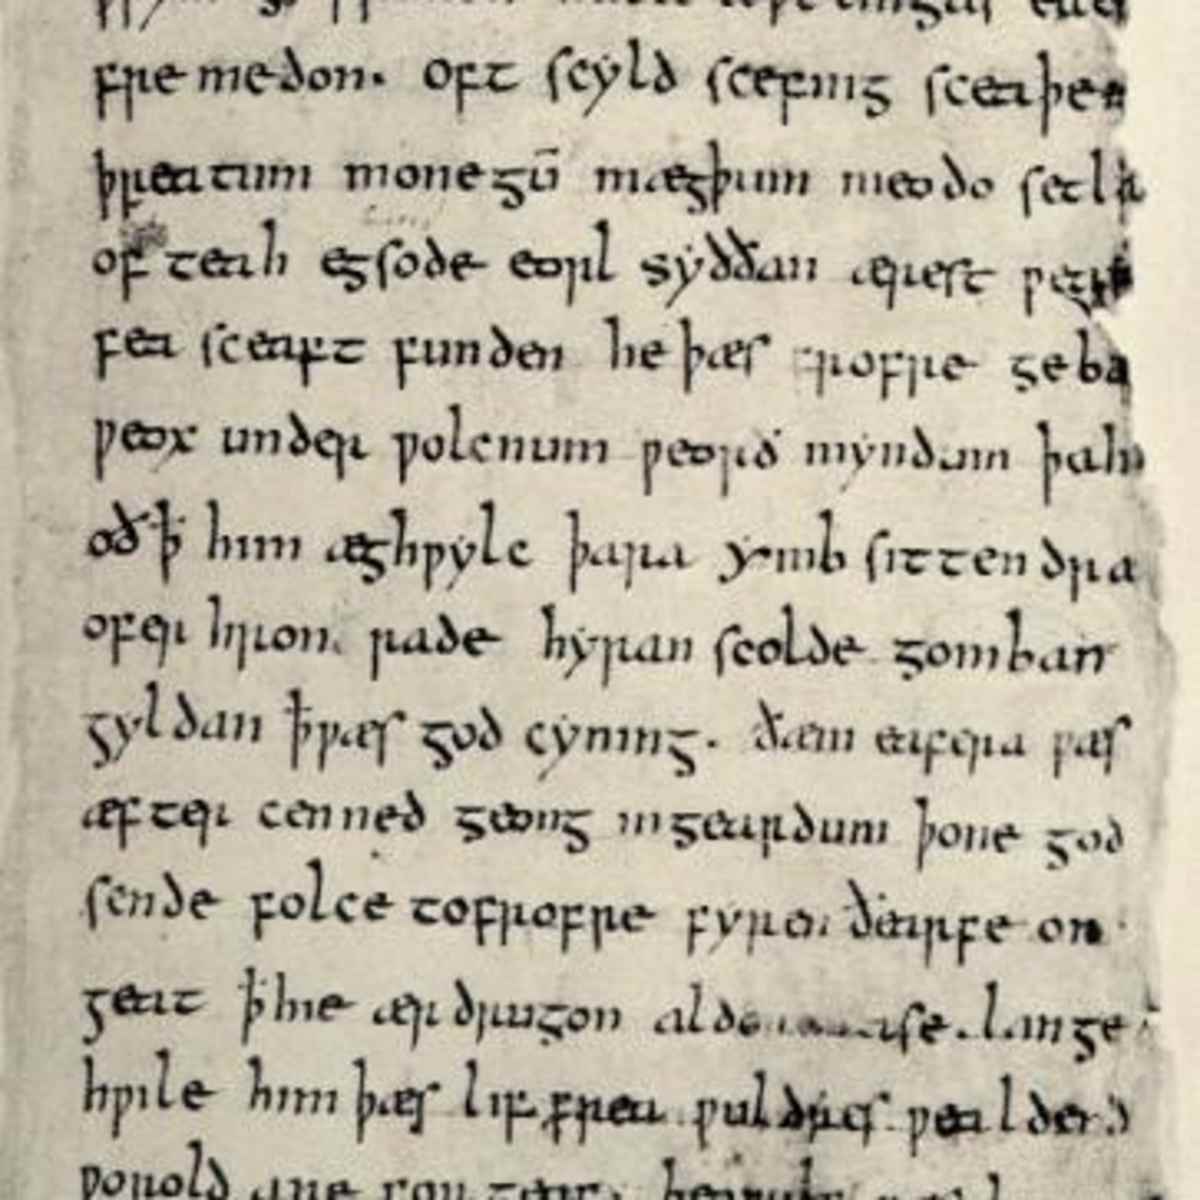 fremedon. oft scyld scefing sceaþen
þreatum monegū mægþum meodo setla
of teah egsode eorl syððan ærest ƿear
fea sceaft funden he þæs frofre geba
ƿeox under ƿolcnum ƿeorð myndum þah
oð ꝥ him æghƿylc þara ymb sittendra
ofer hron rade hyran scolde gomban
gyldan ꝥ ƿæs god cyning. ðæm eafera ƿæs
æfter cenned geong in geardum þone god
sende folce to frofre fyren ðearfe on
geat ꝥ hie ær drugon aldor ase. lange
hƿile him þæs lif frea ƿuldres ƿealdend
ƿorold are for geaf.